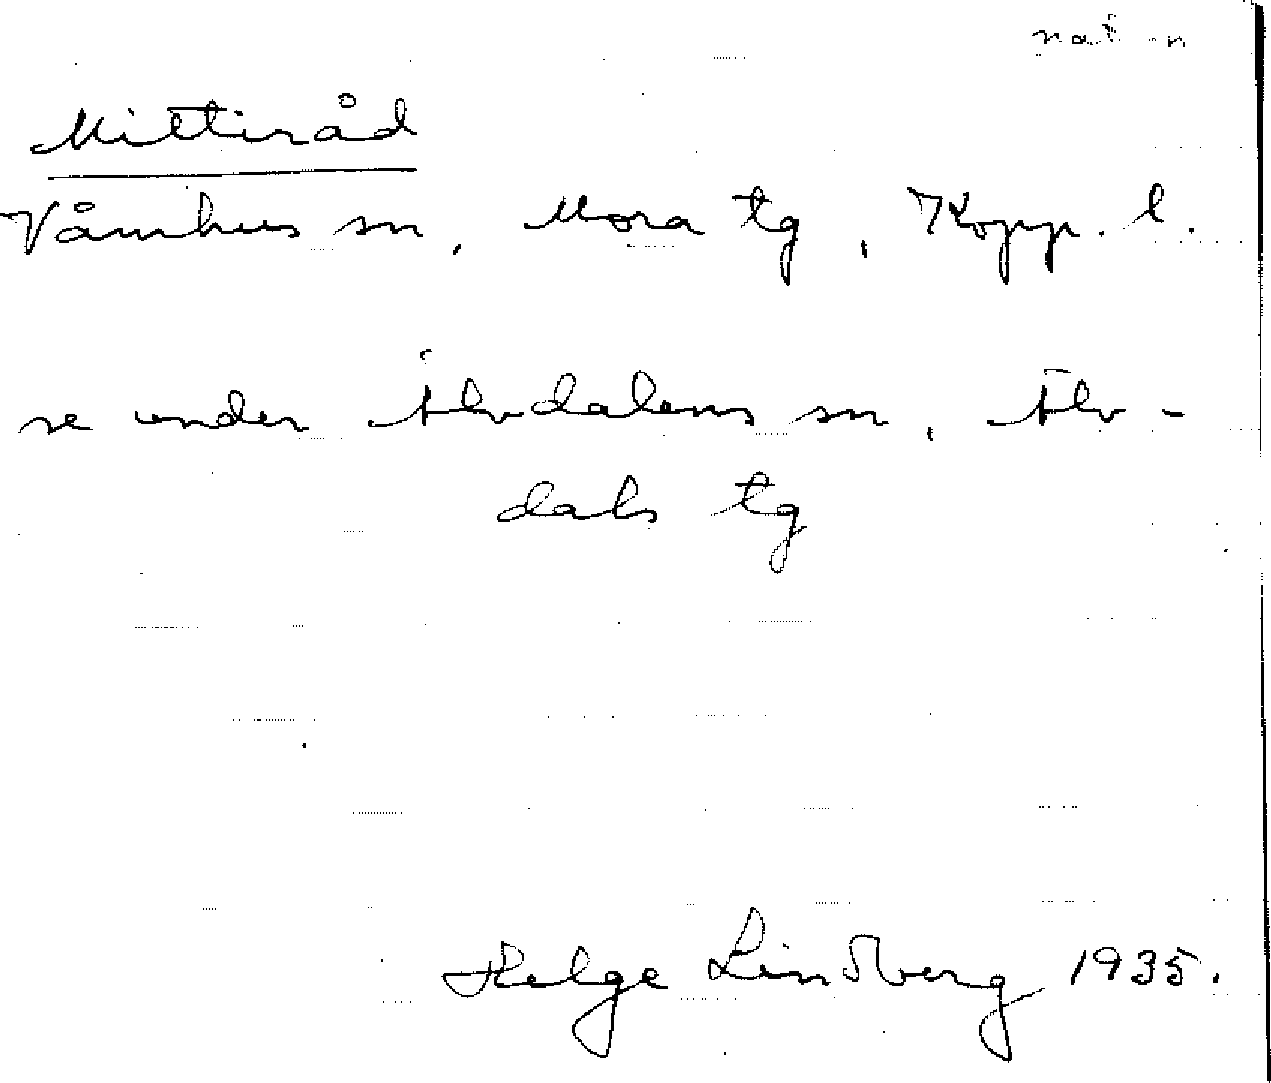 Mittiråd
Våmhus sn, Mora tg, Kopp. l.
se under Älvdalens sn, Älv-
dals tg
Helge Lindberg 1935.